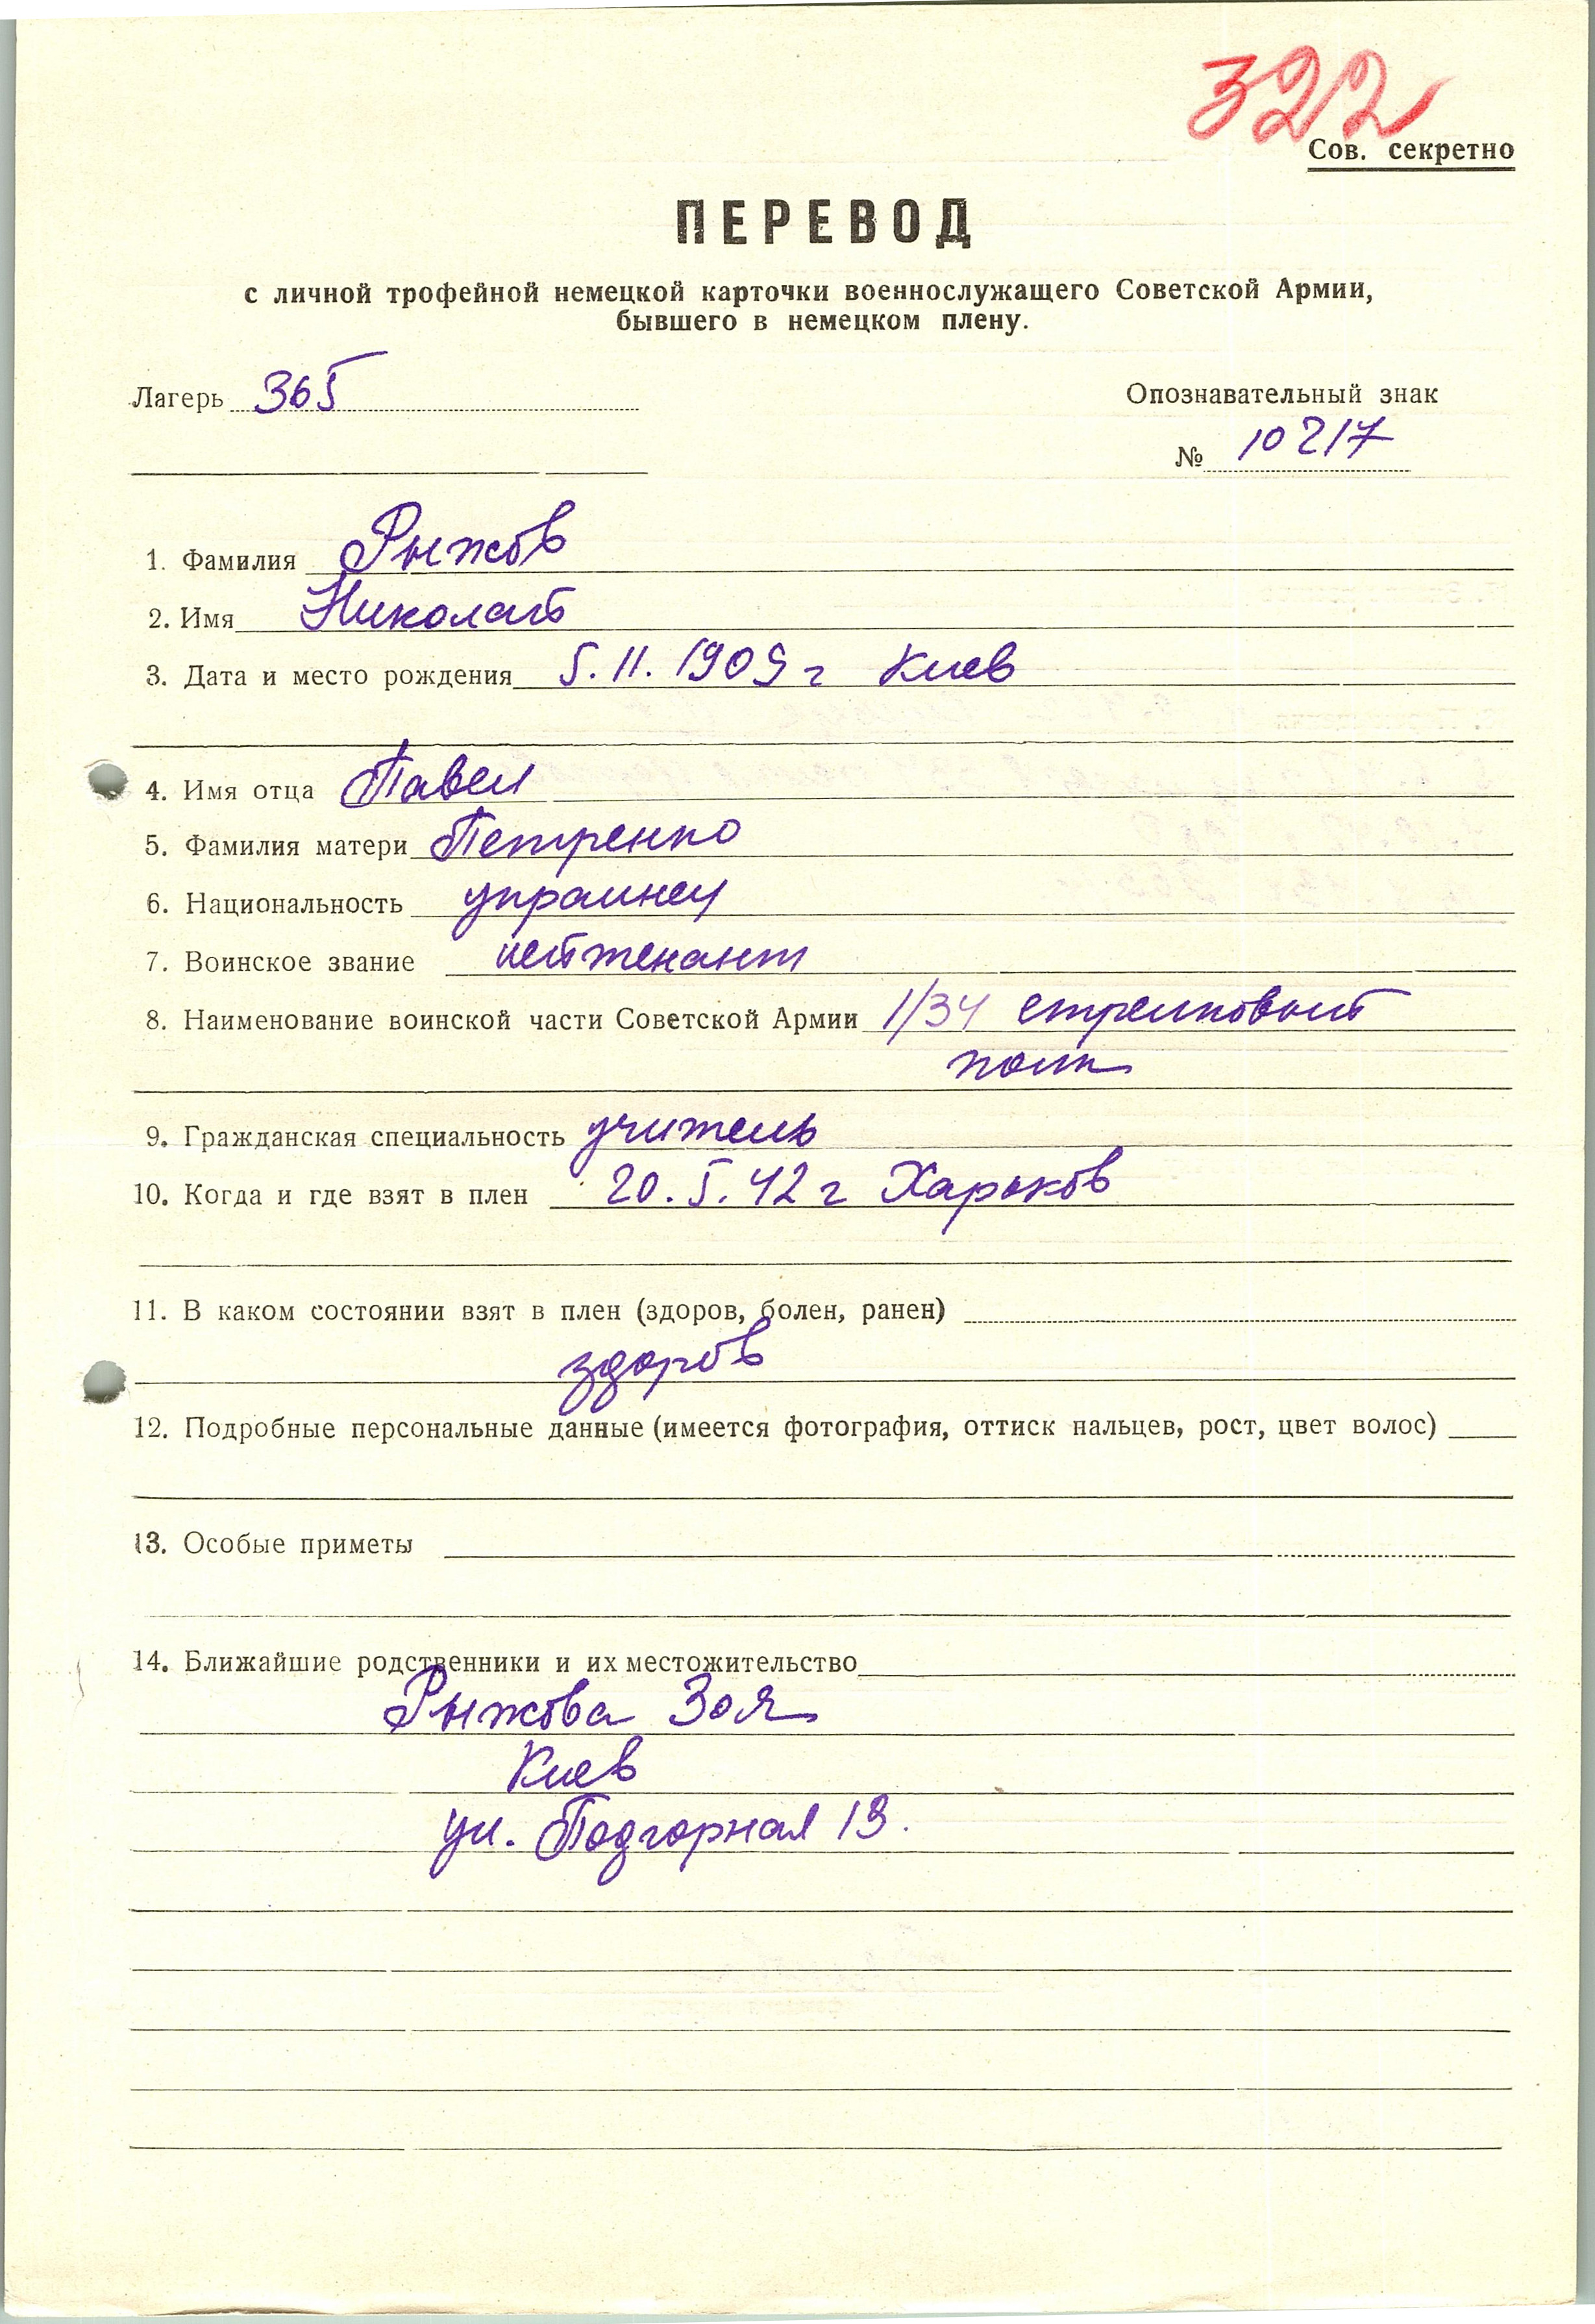 322
Сов. секретно
ПЕРЕВОД
с личной трофейной немецкой карточки военнослужащего Советской Армии,
бывшего в немецком плену.
Лагерь 365 Опознавательный знак
№ 10217
1. Фамилия Рыжов
2. Имя Николай
3. Дата и место рождения 5.11.1909 г Киев
4. Имя отца Павел
5. Фамилия матери Петренко
6. Национальность украинец
7. Воинское звание лейтенант
8. Наименование воинской части Советской Армии 1/34 стрелковый
полк
9. Гражданская специальность учитель
10. Когда и где взят в плен 20.5.42 г Харьков
11. В каком состоянии взят в плен (здоров, болен, ранен)
здоров
12. Подробные персональные данные (имеется фотография, оттиск пальцев, рост, цвет волос)
13. Особые приметы
14. Ближайшие родственники и их местожительство
Рыжова Зоя
Киев
ул. Подгорная 13.